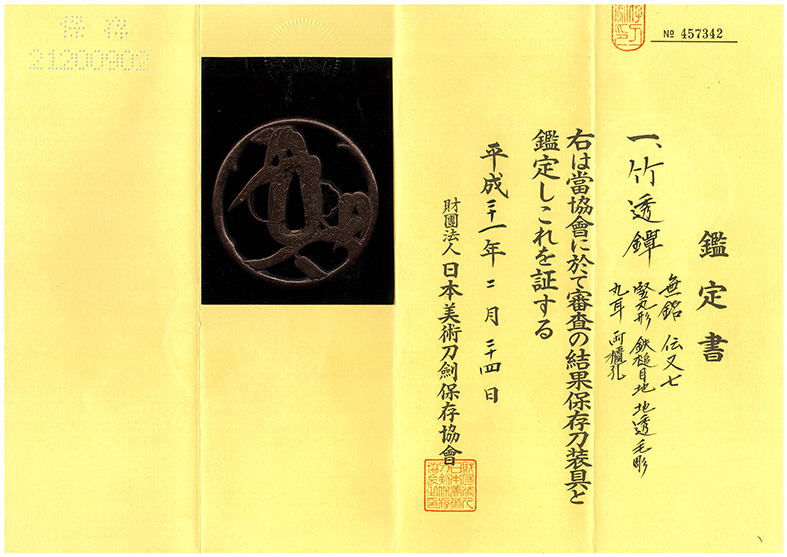 保存
21200902
№ 457342
鑑定書
一、竹透鐔
無銘 伝又七
竪丸形 鉄槌目地 地透毛彫
丸耳 両櫃孔
右は當協會に於て審査の結果保存刀装具と
鑑定しこれを証する
平成二十一年二月二十四日
財團法人日本美術刀劍保存協會